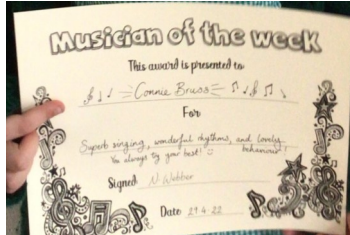 Musician of the week
This award is presented to:
Connie Bruss
For
Superb singing, wonderful rhythms, and lovely
behaviour,
You always try your best!
Signed N Webber
Date 29.4.22